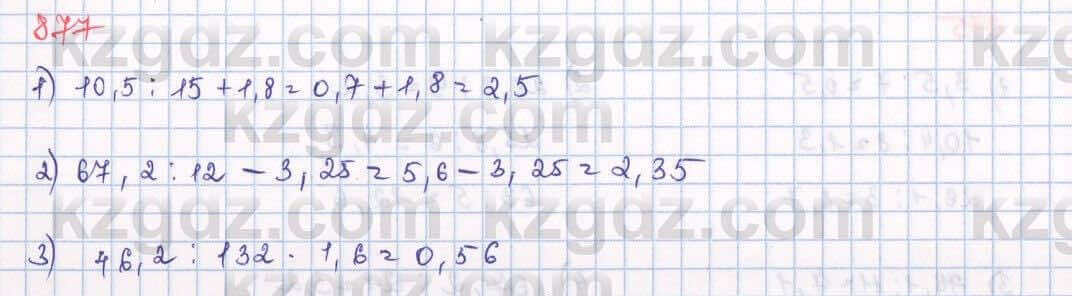 877
kzgdz.com kzgdz.com kzg
1) 10,5 : 15 + 1,8 = 0,7 + 1,8 = 2,5
kzgdz.com
2) 67,2 : 12 - 3,25 = 5,6 - 3,25 = 2,35
kzgdz.com kzgdz.com kzg
3) 46,2 : 132 · 1,6 = 0,56
kzgdz.com